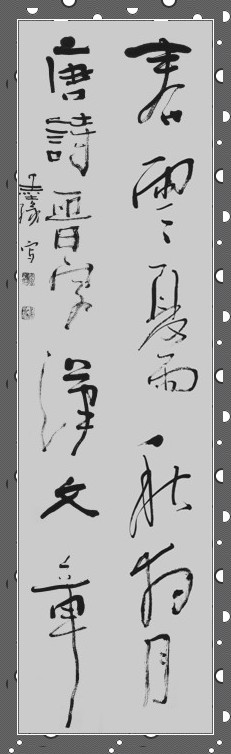 春雲夏雨秋夜月
唐詩晉字漢文章
写